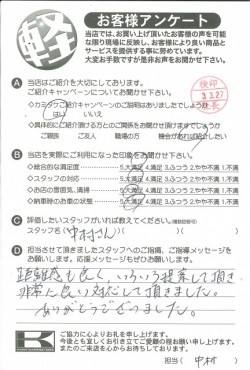 軽
お客様アンケート
当店では、お買い上げ頂いたお客様の声を可能
な限り現場に反映し、お客様により良い商品と
サービスを提供する事に努めています。
大変お手数ですが是非お声をお聞かせ下さい。
検印
3.3.27
A 当店はご紹介を大切にしております。
ご紹介キャンペーンについてお聞かせ下さい。
◇カミタケご紹介キャンペーンのご説明はありましたでしょうか
はい いいえ
◇具体的にご紹介頂ける方との関係をお聞かせ頂けますでしょうか
ご親族 ご友人 職場の方 機会があれば紹介したい
B 当店を実際にご利用になった印象をお聞かせ下さい。
◇総合的な満足度 5.大満足 4.満足 3.ふつう 2.やや不満 1.不満
◇スタッフの対応 5.大満足 4.満足 3.ふつう 2.やや不満 1.不満
◇お店の雰囲気、清掃 5.大満足 4.満足 3.ふつう 2.やや不満 1.不満
◇納車時のお車の状態 5.大満足 4.満足 3.ふつう 2.やや不満 1.不満
C 評価したいスタッフがいれば教えてください。
スタッフ名( 中村さん )
D 担当させて頂きましたスタッフへのご指摘、ご指導メッセージを
お願いします。応援メッセージもぜひお願いします。
距離感も良く、いろいろ提案して頂き
非常に良い対応して頂きました。
ありがとうございました。
K
ご協力に心よりお礼を申し上げます。
今後とも宜しくお引き立てご愛顧の程お願い申し上げます。
またのご来店を心からお待ちしております。
担当( 中村 )